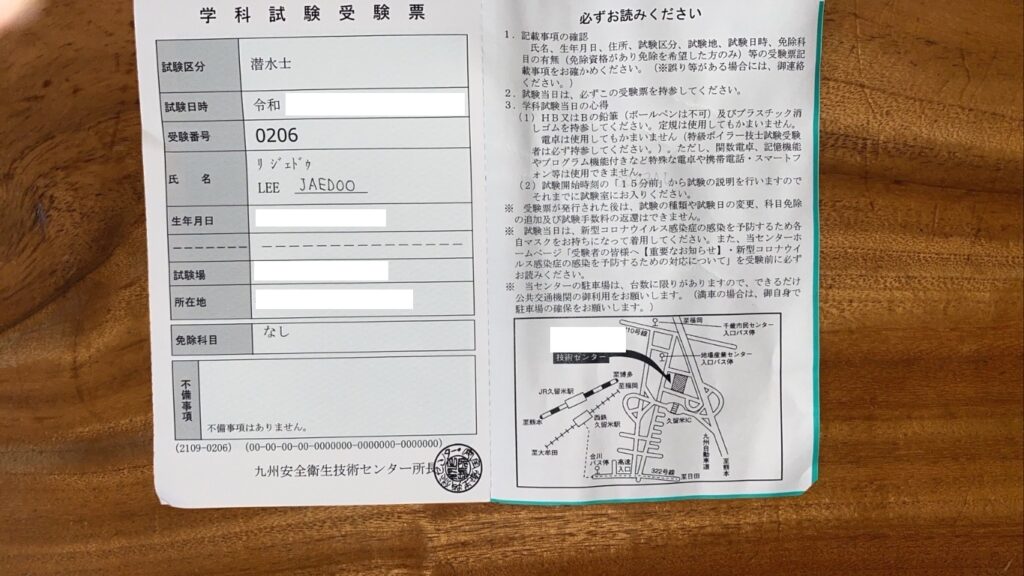 学科試験受験票
試験区分
潜水士
試験日時
令和
受験番号
0206
氏 名
リ ジェドゥ
LEE JAEDOO
生年月日
試験場
所在地
免除科目
なし
不備事項
不備事項はありません。
(2109-0206) (00-00-00-00-0000000-0000000-0000000)
九州安全衛生技術センター所長
必ずお読みください
1．記載事項の確認
氏名、生年月日、住所、試験区分、試験地、試験日時、免除科
目の有無（免除資格があり免除を希望した方のみ）等の受験票記
載事項をお確かめください。（※誤り等がある場合には、御連絡
ください。）
2．試験当日は、必ずこの受験票を持参してください。
3．学科試験当日の心得
（1）ＨＢ又はＢの鉛筆（ボールペンは不可）及びプラスチック消
しゴムを持参してください。定規は使用してもかまいません。
電卓は使用してもかまいません（特級ボイラー技士試験受験
者は必ず持参してください。）。ただし、関数電卓、記憶機能
やプログラム機能付きなど特殊な電卓や携帯電話・スマートフ
ォン等は使用できません。
（2）試験開始時刻の「１５分前」から試験の説明を行いますので
それまでに試験室にお入りください。
※ 受験票が発行された後は、試験の種類や試験日の変更、科目免除
の追加及び試験手数料の返還はできません。
※ 試験当日は、新型コロナウイルス感染症の感染を予防するため各
自マスクをお持ちになって着用してください。また、当センターホ
ームページ「受験者の皆様へ【重要なお知らせ】・新型コロナウイ
ルス感染症の感染を予防するための対応について」を受験前に必ず
お読みください。
※ 当センターの駐車場は、台数に限りがありますので、できるだけ
公共交通機関の御利用をお願いします。（満車の場合は、御自身で
駐車場の確保をお願いします。）
至福岡
210号線
千歳市民センター
入口バス停
技術センター
地場産業センター
入口バス停
至博多
至福岡
JR久留米駅
西鉄
久留米駅
久留米IC
至熊本
至大牟田
合川
バス停
高速
入口
322号線
至日田
九州自動車道
至熊本